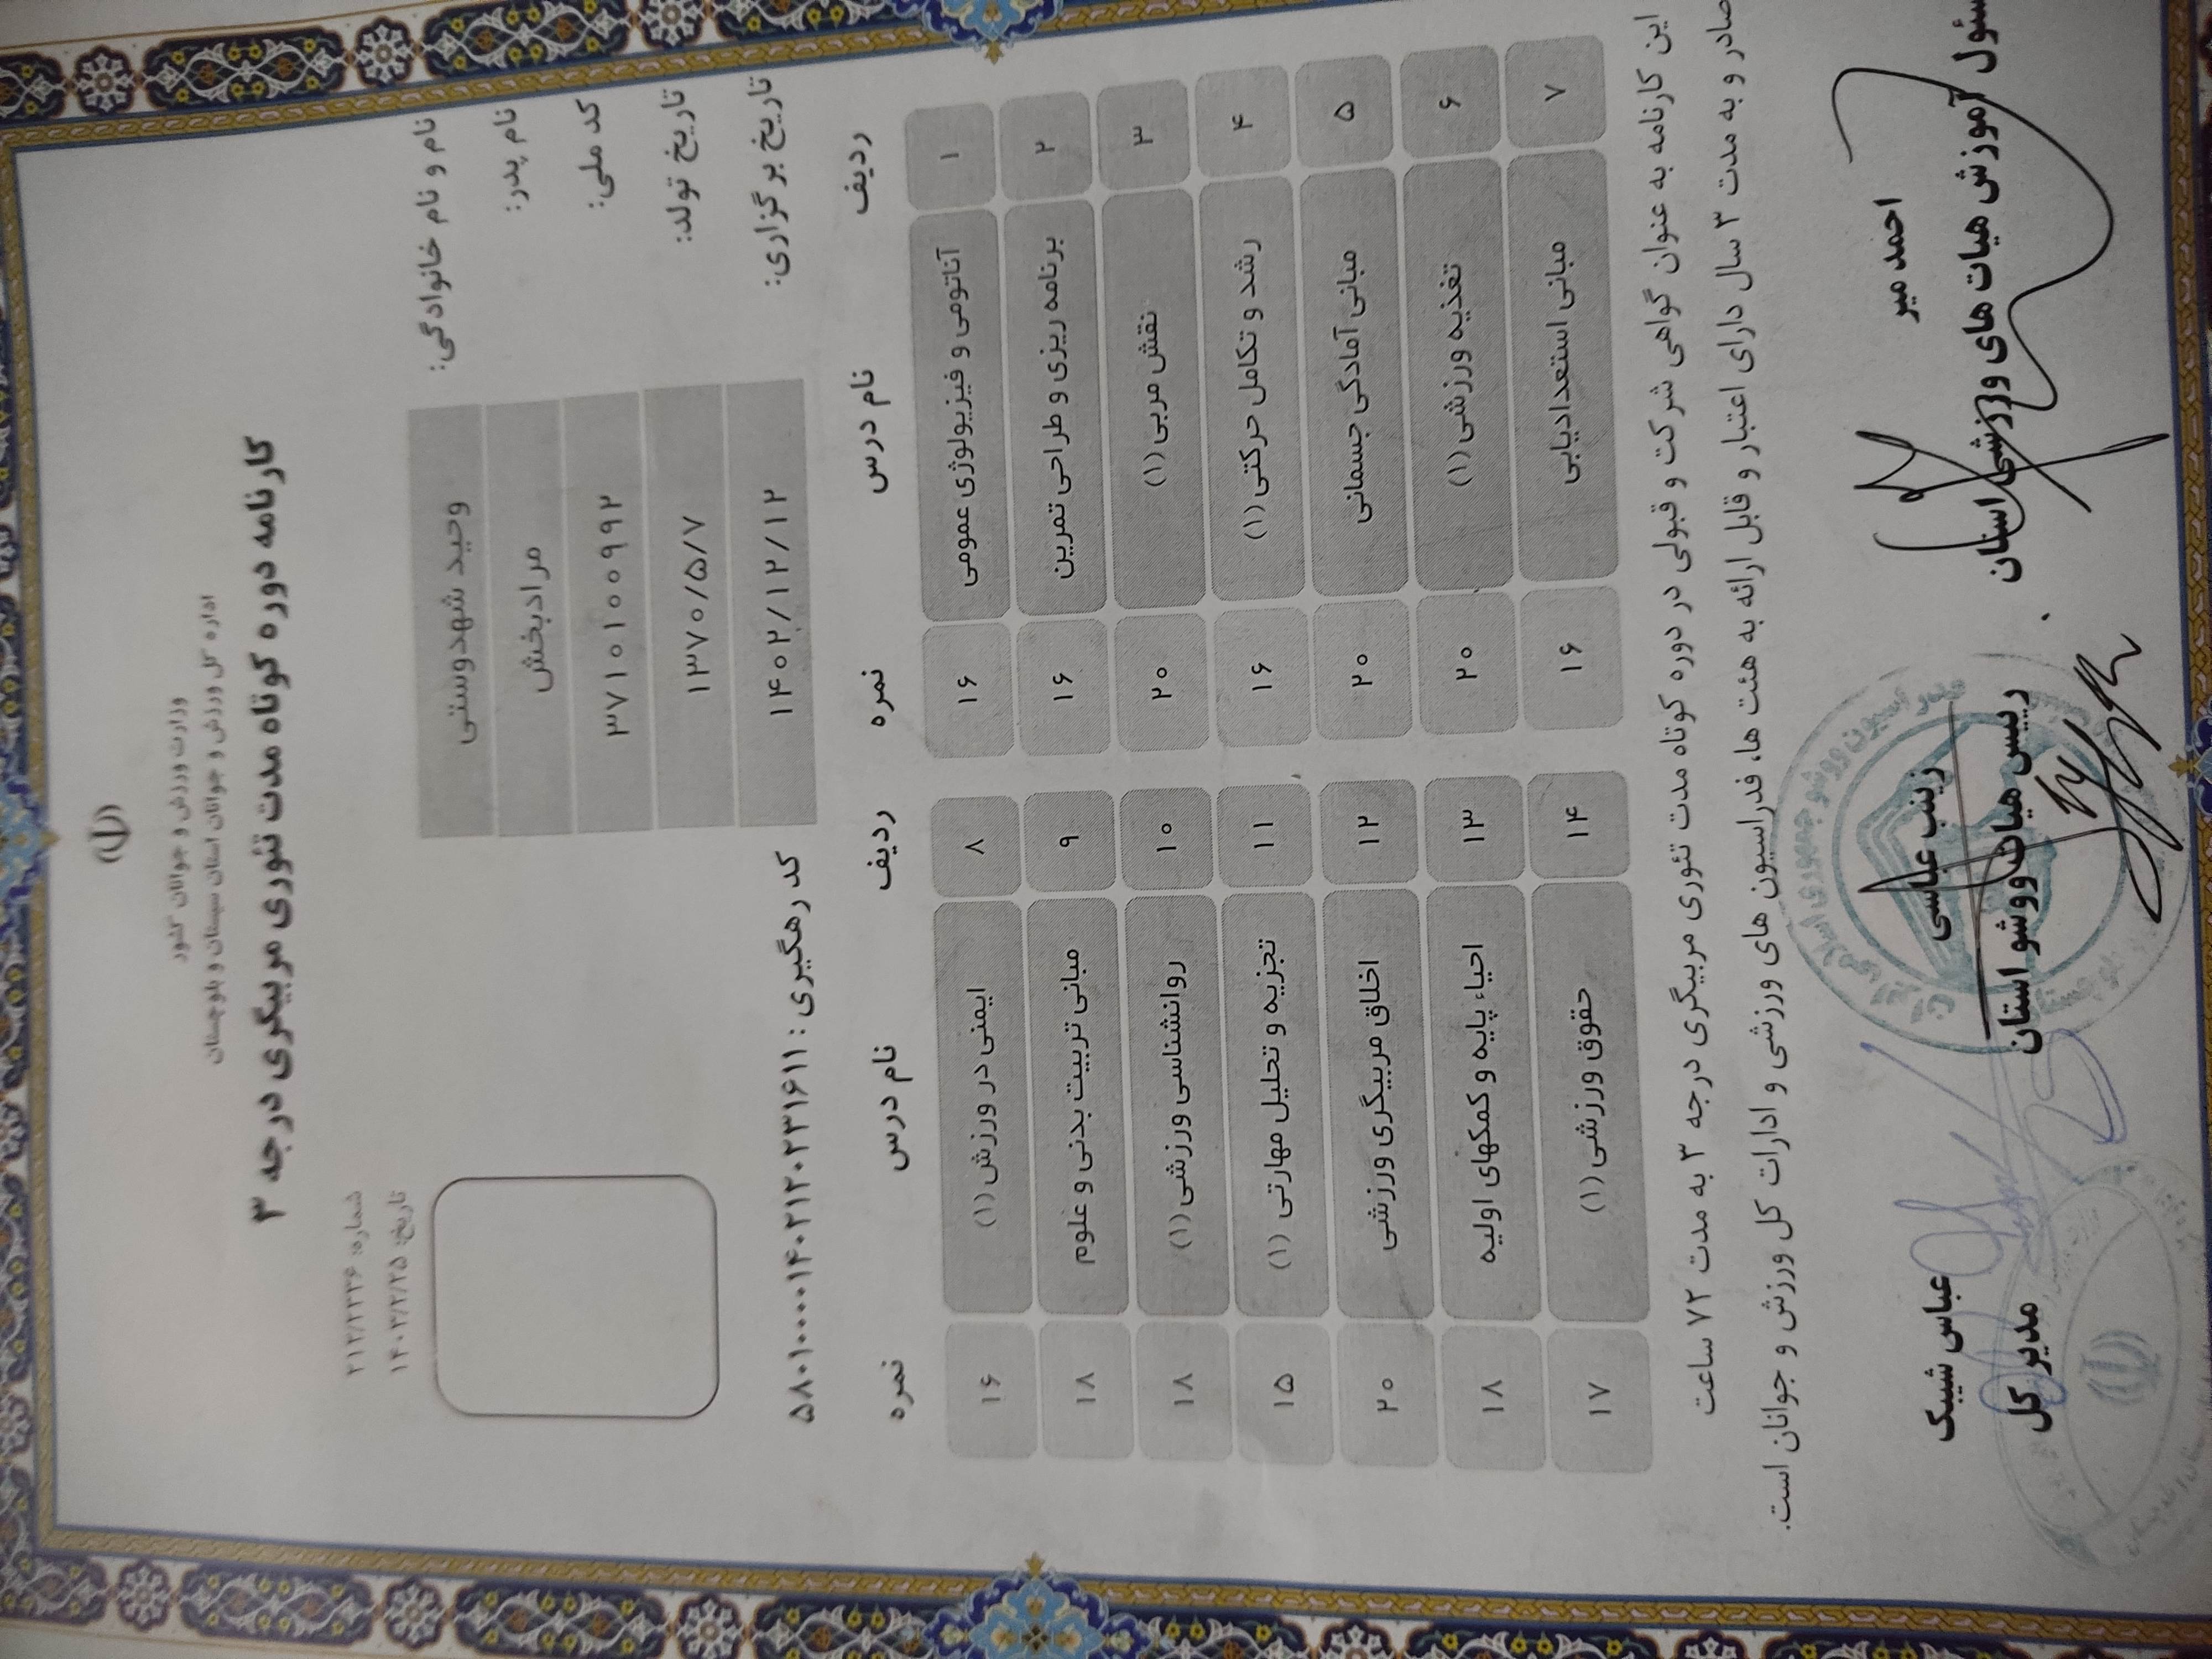 وزارت ورزش و جوانان کشور
اداره کل ورزش و جوانان استان سیستان و بلوچستان
کارنامه دوره کوتاه مدت تئوری مربیگری درجه ۳
شماره: ۲۱۲/۲۲۳۶
تاریخ: ۱۴۰۳/۲/۲۵
نام و نام خانوادگی: وحید شهدوستی
نام پدر: مرادبخش
کد ملی: ۳۷۱۰۱۰۰۹۹۲
تاریخ تولد: ۱۳۷۰/۵/۷
تاریخ برگزاری: ۱۴۰۲/۱۲/۱۲
کد رهگیری : ۵۸۰۱۰۰۰۰۱۴۰۲۱۲۰۲۳۱۶۱۱
ردیف نام درس نمره ردیف نام درس نمره
۱ آناتومی و فیزیولوژی عمومی ۱۶ ۸ ایمنی در ورزش (۱) ۱۶
۲ برنامه ریزی و طراحی تمرین ۱۶ ۹ مبانی تربیت بدنی و علوم ۱۸
۳ نقش مربی (۱) ۲۰ ۱۰ روانشناسی ورزشی (۱) ۱۸
۴ رشد و تکامل حرکتی (۱) ۱۶ ۱۱ تجزیه و تحلیل مهارتی (۱) ۱۵
۵ مبانی آمادگی جسمانی ۲۰ ۱۲ اخلاق مربیگری ورزشی ۲۰
۶ تغذیه ورزشی (۱) ۲۰ ۱۳ احیاء پایه و کمکهای اولیه ۱۸
۷ مبانی استعدادیابی ۱۶ ۱۴ حقوق ورزشی (۱) ۱۷
این کارنامه به عنوان گواهی شرکت و قبولی در دوره کوتاه مدت تئوری مربیگری درجه ۳ به مدت ۷۲ ساعت
صادر و به مدت ۳ سال دارای اعتبار و قابل ارائه به هئت ها، فدراسیون های ورزشی و ادارات کل ورزش و جوانان است.
احمد میر
مسئول آموزش هیات های ورزشی استان
زینب عباسی
رییس هیات ووشو استان
عباس شیبک
مدیر کل